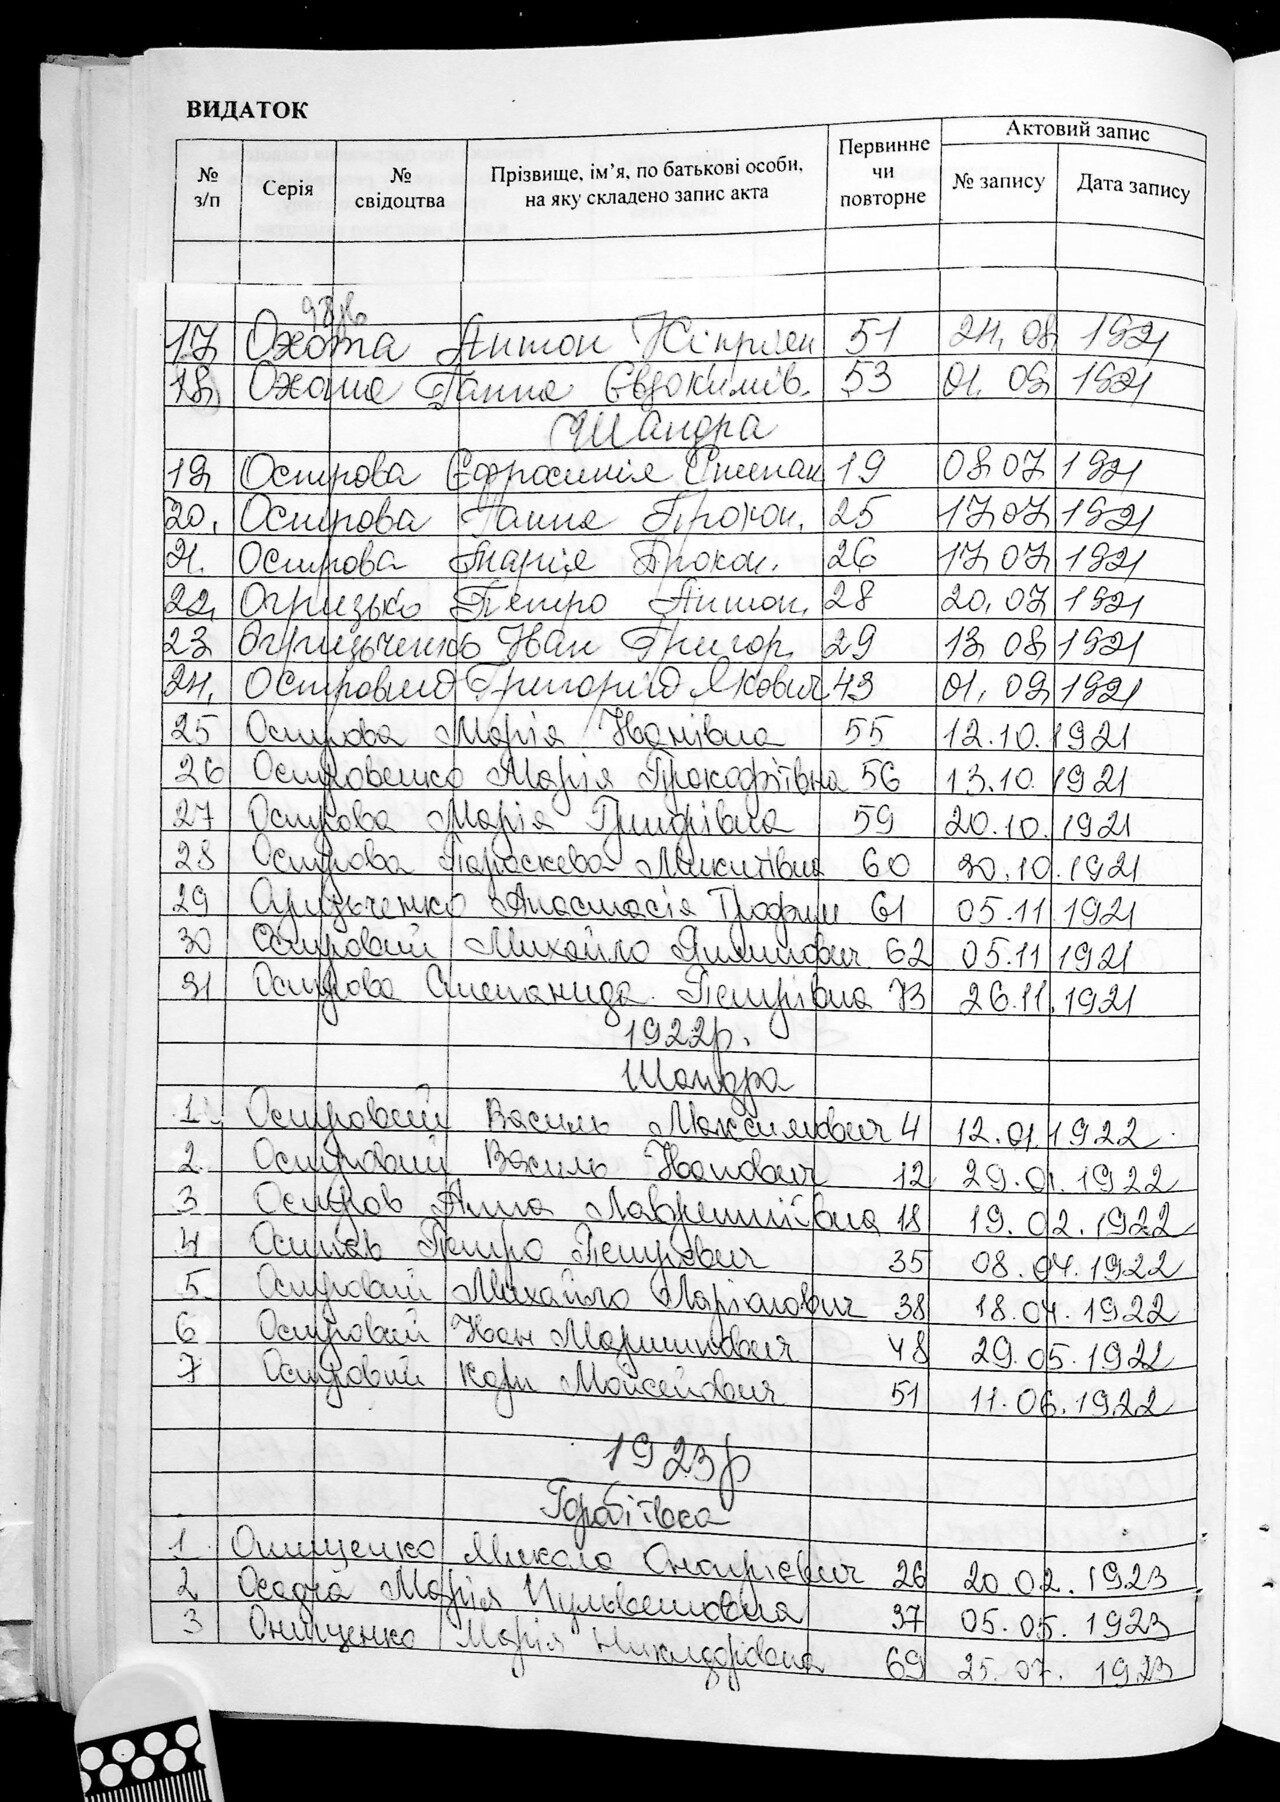 ВИДАТОК
№ з/п Серія № свідоцтва Прізвище, ім’я, по батькові особи, на яку складено запис акта Первинне чи повторне Актовий запис № запису Дата запису
17 Охота Антон Кіпріян 51 24.08 1921
18 Охота Ганна Євдокимів. 53 01.09 1921
Шандра
19 Острова Єфросинія Степан 19 08 07 1921
20. Острова Ганна Прокоп. 25 17 07 1921
21. Острова Марія Прокоп. 26 17 07 1921
22. Огризько Петро Антон. 28 20.07 1921
23 Огризьченко Іван Григор. 29 13 08 1921
24. Островий Григорій Якович 43 01.09 1921
25 Острова Марія Іванівна 55 12.10.1921
26 Островенко Марія Прокофіївна 56 13.10.1921
27 Острова Марія Григорівна 59 20.10.1921
28 Острова Параскева Микитівна 60 30.10.1921
29 Огризьченко Анастасія Трофим 61 05.11.1921
30 Островий Михайло 62 05.11 1921
31 Острова Степанида Петрівна 73 26.11.1921
1922р.
Шандра
1. Островий Василь Максимович 4 12.01.1922
2. Островий Василь Іванович 12 29.01.1922
3 Остров Анна Лаврентіївна 18 19.02.1922
4 Петро Петрович 35 08.04.1922
5. Островий Михайло Маріянович 38 18.04.1922
6 Островий Іван Мартинович 48 29.05.1922
7 Островий Карп Мойсейович 51 11.06.1922
1923р
Горбтівка
1 Онищенко Микола Онопрієвич 26 20.02.1923
2 Осадча Марія 37 05.05.1923
3 Онищенко Марія Никидорівна 69 25.07.1923